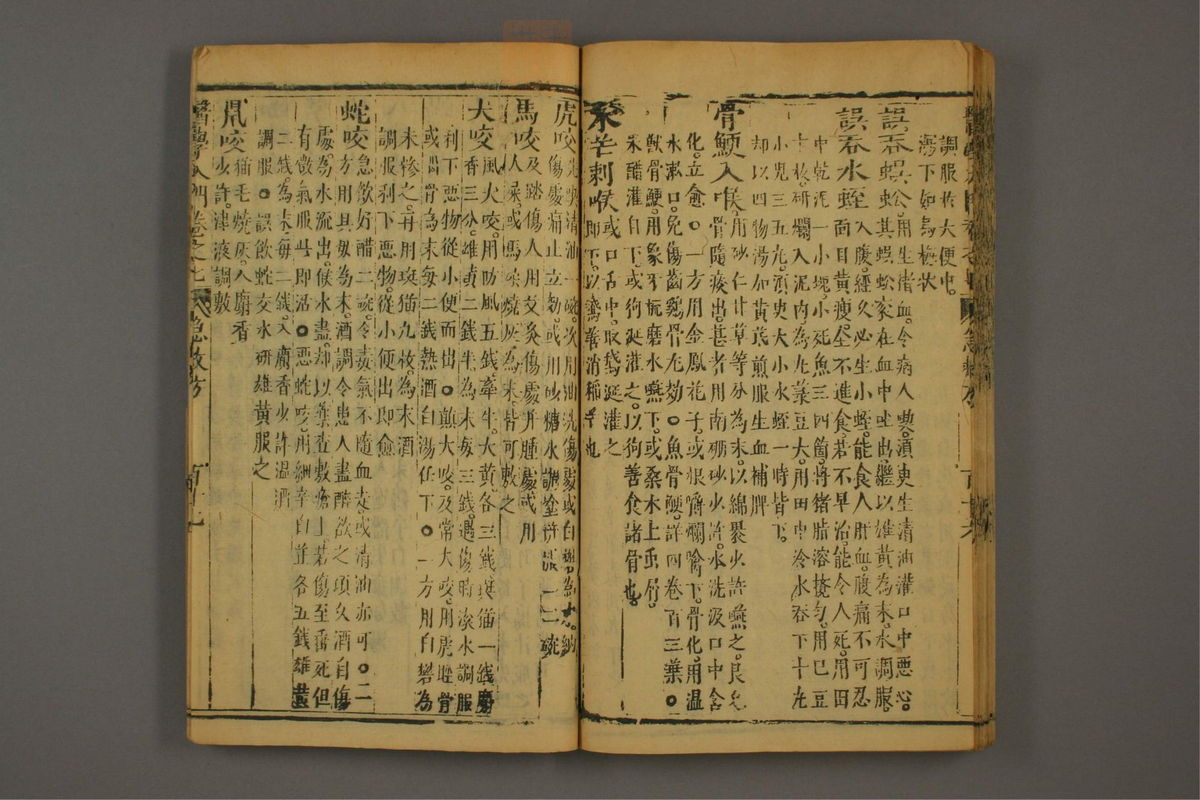 調服於大便中
瀉下如烏梅狀
誤吞蜈蚣用生猪血令病人喫須臾生清油灌口中惡心
其蜈蚣衮在血中吐出繼以雄黃為末水調服
誤吞水蛭入腹經久必生小蛭能食人肝血腹痛不可忍
面目黃瘦全不進食若不早治能令人死用田
中乾泥一小塊小死魚三四箇將猪脂溶攪勻用巴豆
十枚研爛入泥內為丸菉豆大用田中冷水吞下十丸
小兒三五丸須臾大小水蛭一時皆下
却以四物湯加黃芪煎服生血補脾
骨鯁入喉用砂仁甘草等分為末以綿裹少許嚥之良久
骨隨痰出甚者用南硼砂少許水洗汲口中含
化立愈○一方用金鳳花子或根嚼爛噙下骨化用溫
水漱口免傷齒雞骨尤効○魚骨鯁詳四卷百三葉○
獸骨鯁用象牙磨水嚥下或桑木上虫屑
米醋灌自下或狗涎灌之以狗善食諸骨也
禾芒刺喉或口舌中取鵞涎灌之
即下以鵞善消稀芒也
虎咬先喫清油一碗次用油洗傷處或白礬為末納
傷處痛止立効或用砂糖水調塗併服一二碗
馬咬及踏傷人用艾灸傷處并腫處或用
人屎或馬屎燒灰為末皆可敷之
犬咬風犬咬用防風五錢牽牛大黃各三錢斑猫一錢麝
香三分雄黃二錢半為末每三錢遇傷時淡水調服
利下惡物從小便而出○煎犬咬及常犬咬用虎脛骨
或骨為末每二錢熱酒白湯任下○一方用白礬為
末摻之再用斑猫九枚為末酒
調服利下惡物從小便出即愈
蛇咬急飲好醋二碗令毒氣不隨血走或清油亦可○二
方用貝母為末酒調令患人盡醉飲之頃久酒自傷
處為水流出候水盡却以藥查敷瘡上若傷至垂死但
有微氣服此即活○惡蛇咬用細辛白芷各五錢雄黃
二錢為末每二錢入麝香少許溫酒
調服○誤飲蛇交水研雄黃服之
鼠咬猫毛燒灰入麝香
少許津液調敷
醫學入門卷之七
急救方
百十七